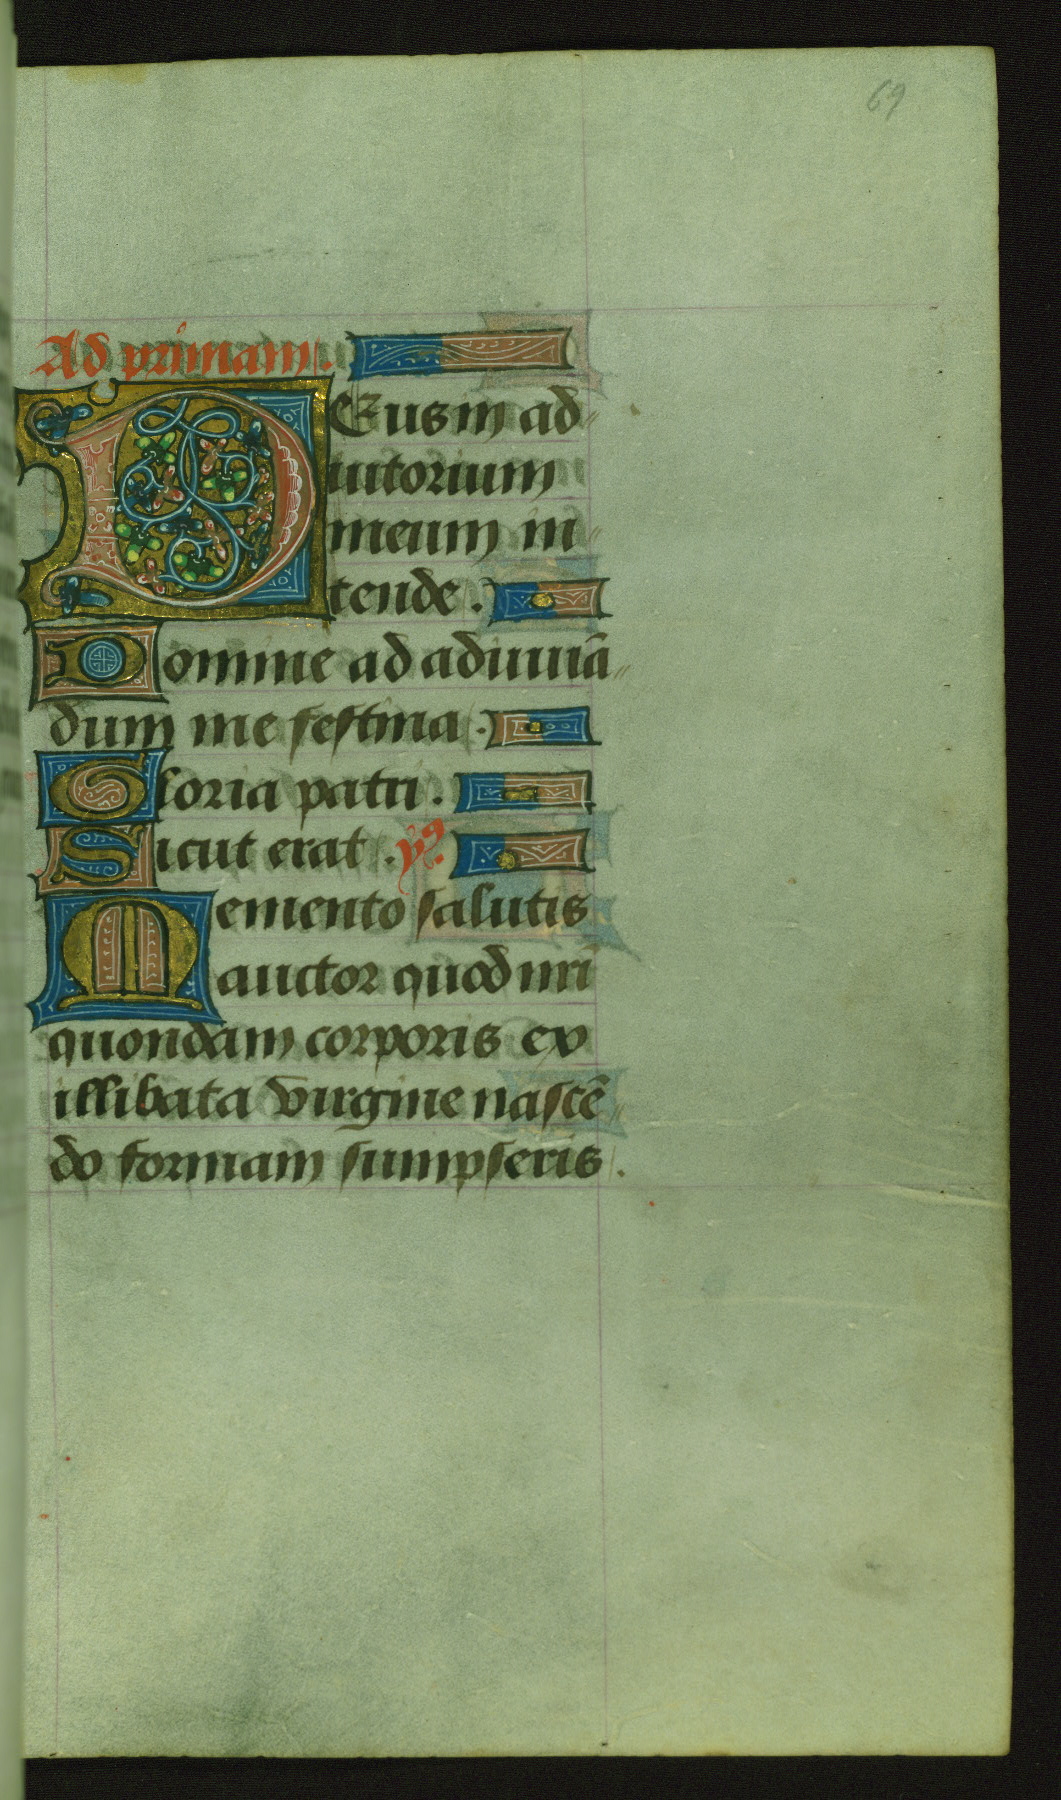 69
Ad primam.
DEus in ad
iutorium
meum in
tende.
Domine ad adiuuã
dum me festina.
Gloria patri.
Sicut erat. ỹ9
Memento salutis
auctor quod nri
quondam corporis ex
illibata virgine nascẽ
do formam sumpseris.